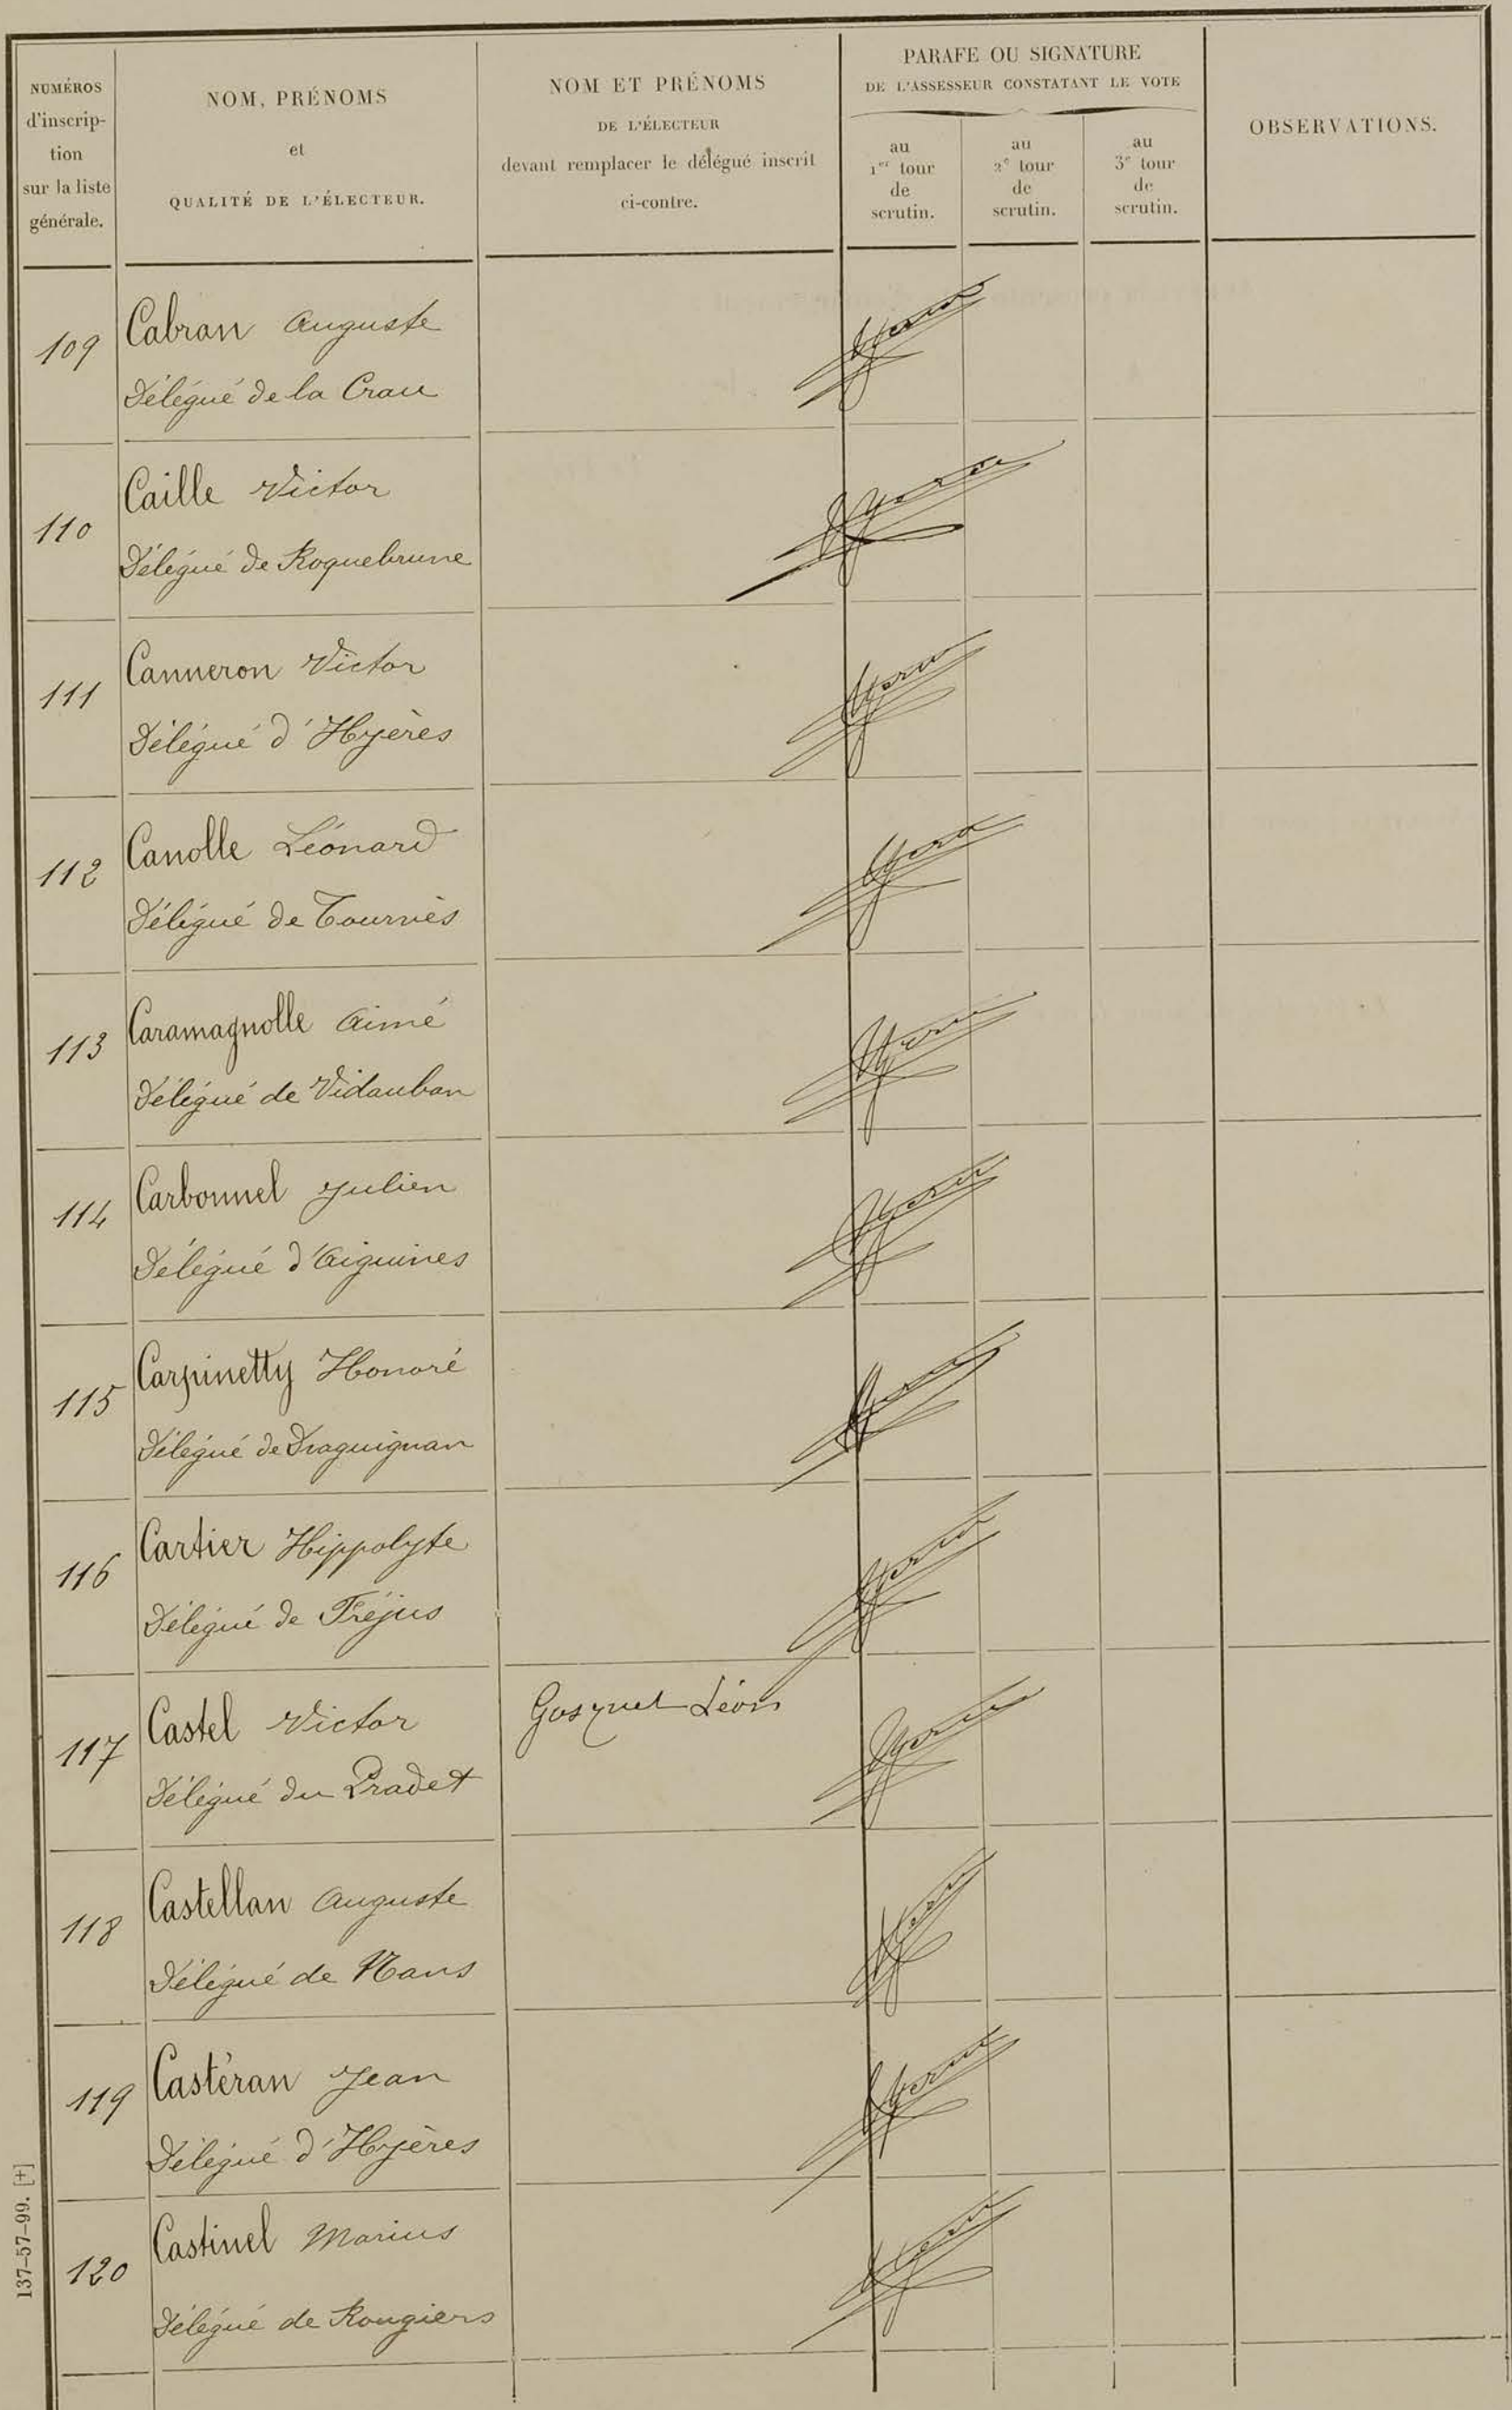 NUMÉROS
d'inscrip-
tion
sur la liste
générale.
NOM, PRÉNOMS
et
QUALITÉ DE L'ÉLECTEUR.
NOM ET PRÉNOMS
DE L'ÉLECTEUR
devant remplacer le délégué inscrit
ci-contre.
PARAFE OU SIGNATURE
DE L'ASSESSEUR CONSTATANT LE VOTE
au
1er tour
de
scrutin.
au
2e tour
de
scrutin.
au
3e tour
de
scrutin.
OBSERVATIONS.
109
Cabran Auguste
Délégué de la Crau
110
Caille Victor
Délégué de Roquebrune
111
Canneron Victor
Délégué d'Hyères
112
Canolle Léonard
Délégué de Tourvès
113
Caramagnolle Aimé
Délégué de Vidauban
114
Carbonnel Julien
Délégué d'Aiguines
115
Carpinetty Honoré
Délégué de Draguignan
116
Cartier Hippolyte
Délégué de Fréjus
117
Castel Victor
Délégué du Pradet
Gasquet Léon
118
Castellan Auguste
Délégué de Nans
119
Castéran Jean
Délégué d'Hyères
120
Castinel Marius
Délégué de Rougiers
137-57-99. [+]